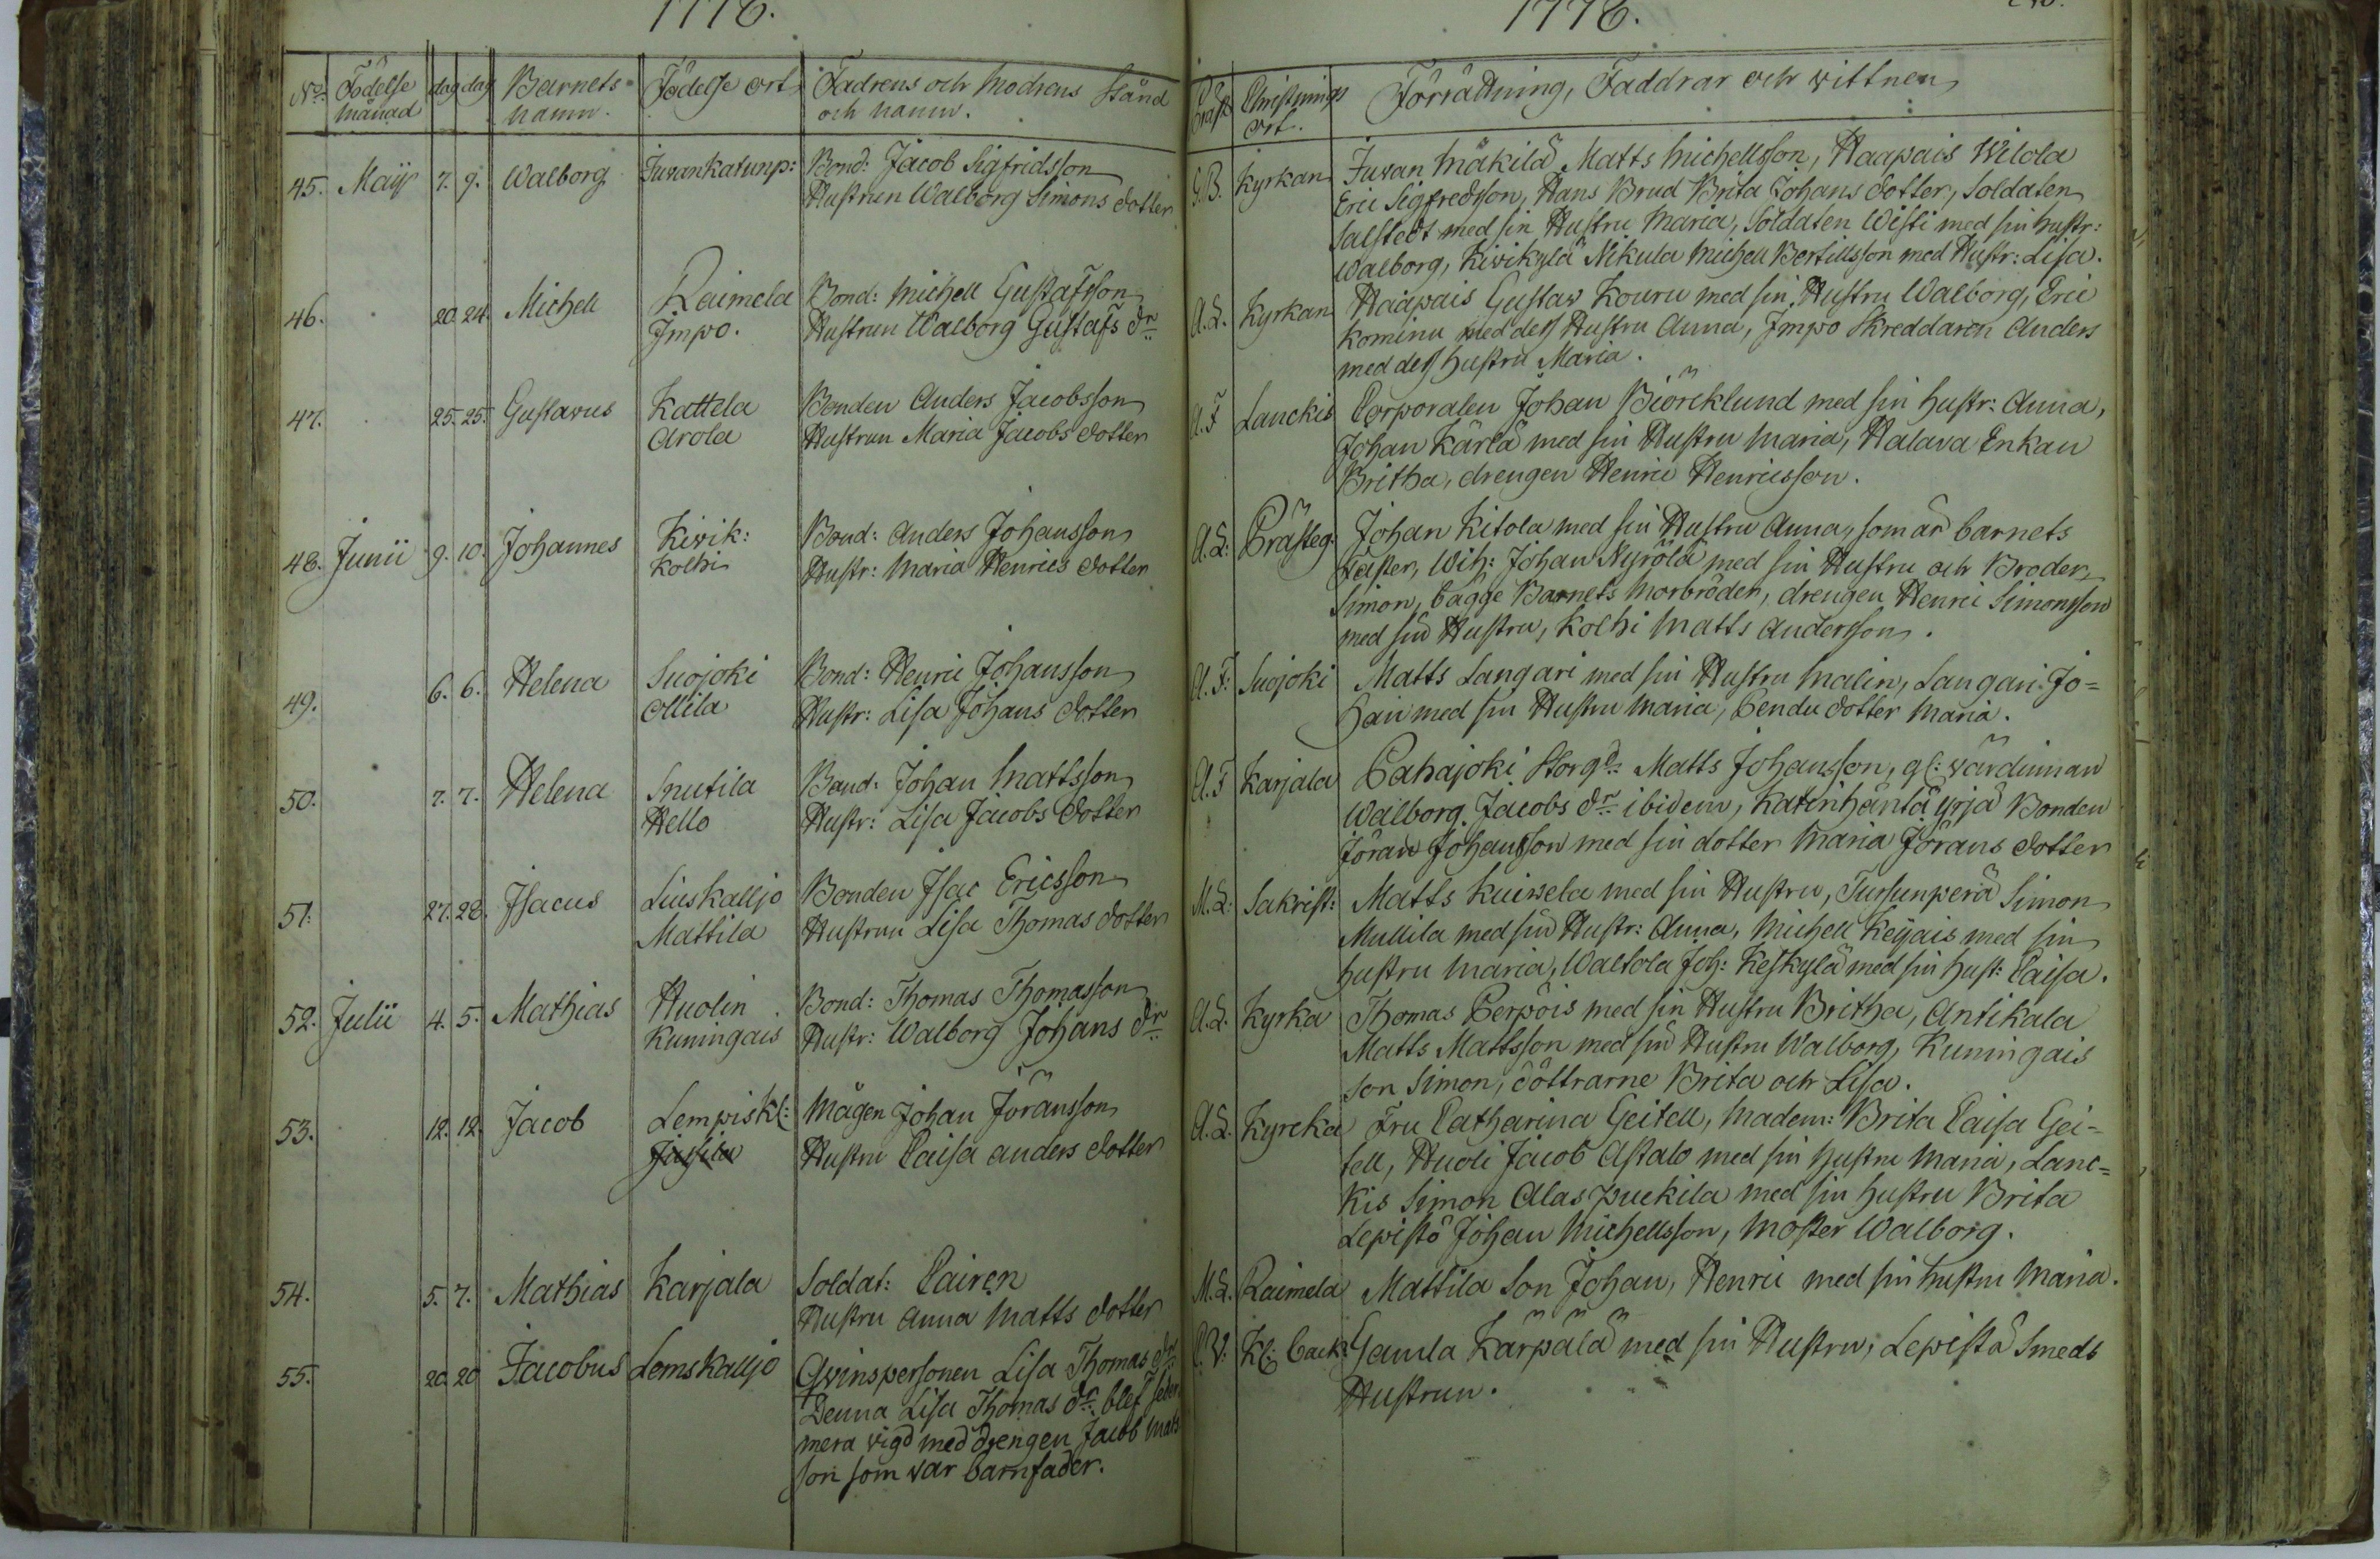 1776.
No. Födelse månad dag dag Barnets namn. Födelse ort Fadrens och Modrens Stånd och namn.
45. Maij 7. 9. Walborg Juvankatunp: Bond: Jacob Sigfridsson
Hustrun Walborg Simons dotter
46. 20. 24. Michell Raimela Bond: Michell Gustafsson
Impo. Hustrun Walborg Gustafs dr
47. 25. 25. Gustavus Kattela Bonden Anders Jacobsson
Arola Hustrun Maria Jacobs dotter
48. Junii 9. 10. Johannes Kivik: Bond: Anders Johansson
Kolhi Hustr: Maria Henrics dotter
49. 6. 6. Helena Suojoki Bond: Henric Johansson
Ollila Hustr: Lisa Johans dotter
50. 7. 7. Helena Snutila Bond: Johan Mattsson
Hello Hustr: Lisa Jacobs dotter
51. 27. 28. Isacus Linskalljo Bonden Isac Ericsson
Mattila Hustrun Lisa Thomas dotter
52. Julii 4. 5. Mathias Huolin Bond: Thomas Thomasson
Kuningais Hustr: Walborg Johans dr
53. 12. 12. Jacob Lempiskl: Mågen Johan Jöransson
Hustru Caisa Anders dotter
54. 5. 7. Mathias Karjala Soldat: Cairen
Hustru Anna Matts dotter
55. 20 20 Jacobus Lemskalljo Qvinspersonen Lisa Thomas dr
Denna Lisa Thomas dr blef seder
mera vigd med drengen Jacob Mats
son som var barnfader.
1776.
Präst Christnings ort. Förrättning, Faddrar och wittnen
G.B. Kyrkan Juvan Mäkilä Matts Michellsson, Haapais Wilola
Eric Sigfredsson, Hans Brud Brita Johans dotter, Soldaten
Salstedt med sin Hustru Maria, Soldaten Wisti med sin hustr:
Walborg, Kivikylä Nikula Michell Bertillsson med Hustr: Lisa.
A.L. Kyrkan Haapais Gustav Kouru med sin Hustru Walborg, Eric
Kominu med dess Hustru Anna, Impo Skreddaren Anders
med dess hustru Maria.
A.F Lanckis Corporalen Johan Biörcklund med sin hustr: Anna,
Johan Kärlä med sin Hustru Maria, Halava Enkan
Britha, drengen Henric Henricsson.
A.L: Prästeg. Johan Kitola med sin Hustru Anna, som är barnets
faster, Wih: Johan Nyrölä med sin Hustru och Broder
Simon, bägge Barnets Morbröder, drengen Henric Simonsson
med sin Hustru, Kolhi Matts Andersson.
A.F: Suojoki Matts Langari med sin Hustru Malin, Langari Jo=
han med sin Hustru Maria, Cendu dotter Maria.
A.F Karjala Pahajoki Storgd: Matts Johansson, gl: värdinnan
Walborg Jacobs dr ibidem, Katinhäntä yrjä Bonden
Jöran Johansson med sin dotter Maria Jörans dotter
M.L: Sakrist: Matts Kuivela med sin Hustru, Tursunperä Simon
Mullila med sin Hustr: Anna, Michell Keijais med sin
hustru Maria, Waltola Joh: Keskylä med sin hust: Caisa.
A.L. Kyrka Thomas Perpois med sin Hustru Britha, Antikala
Matts Mattsson med sin Hustru Walborg, Kuningais
son Simon, döttrarne Brita och Lisa.
A.L. Kyrcka Fru Catharina Geitell, Madem: Brita Caisa Gei=
tell, Huoli Jacob Astalo med sin hustru Maria, Lanc=
kis Simon Alaspuckila med sin hustru Brita
Lepistö Johan Michellsson, Moster Walborg.
M.L. Raimela Mattila Son Johan, Henric med sin hustru Maria.
Kl: back: Gamla Kärpälä med sin Hustru, Lepistö Smeds
Hustrun.